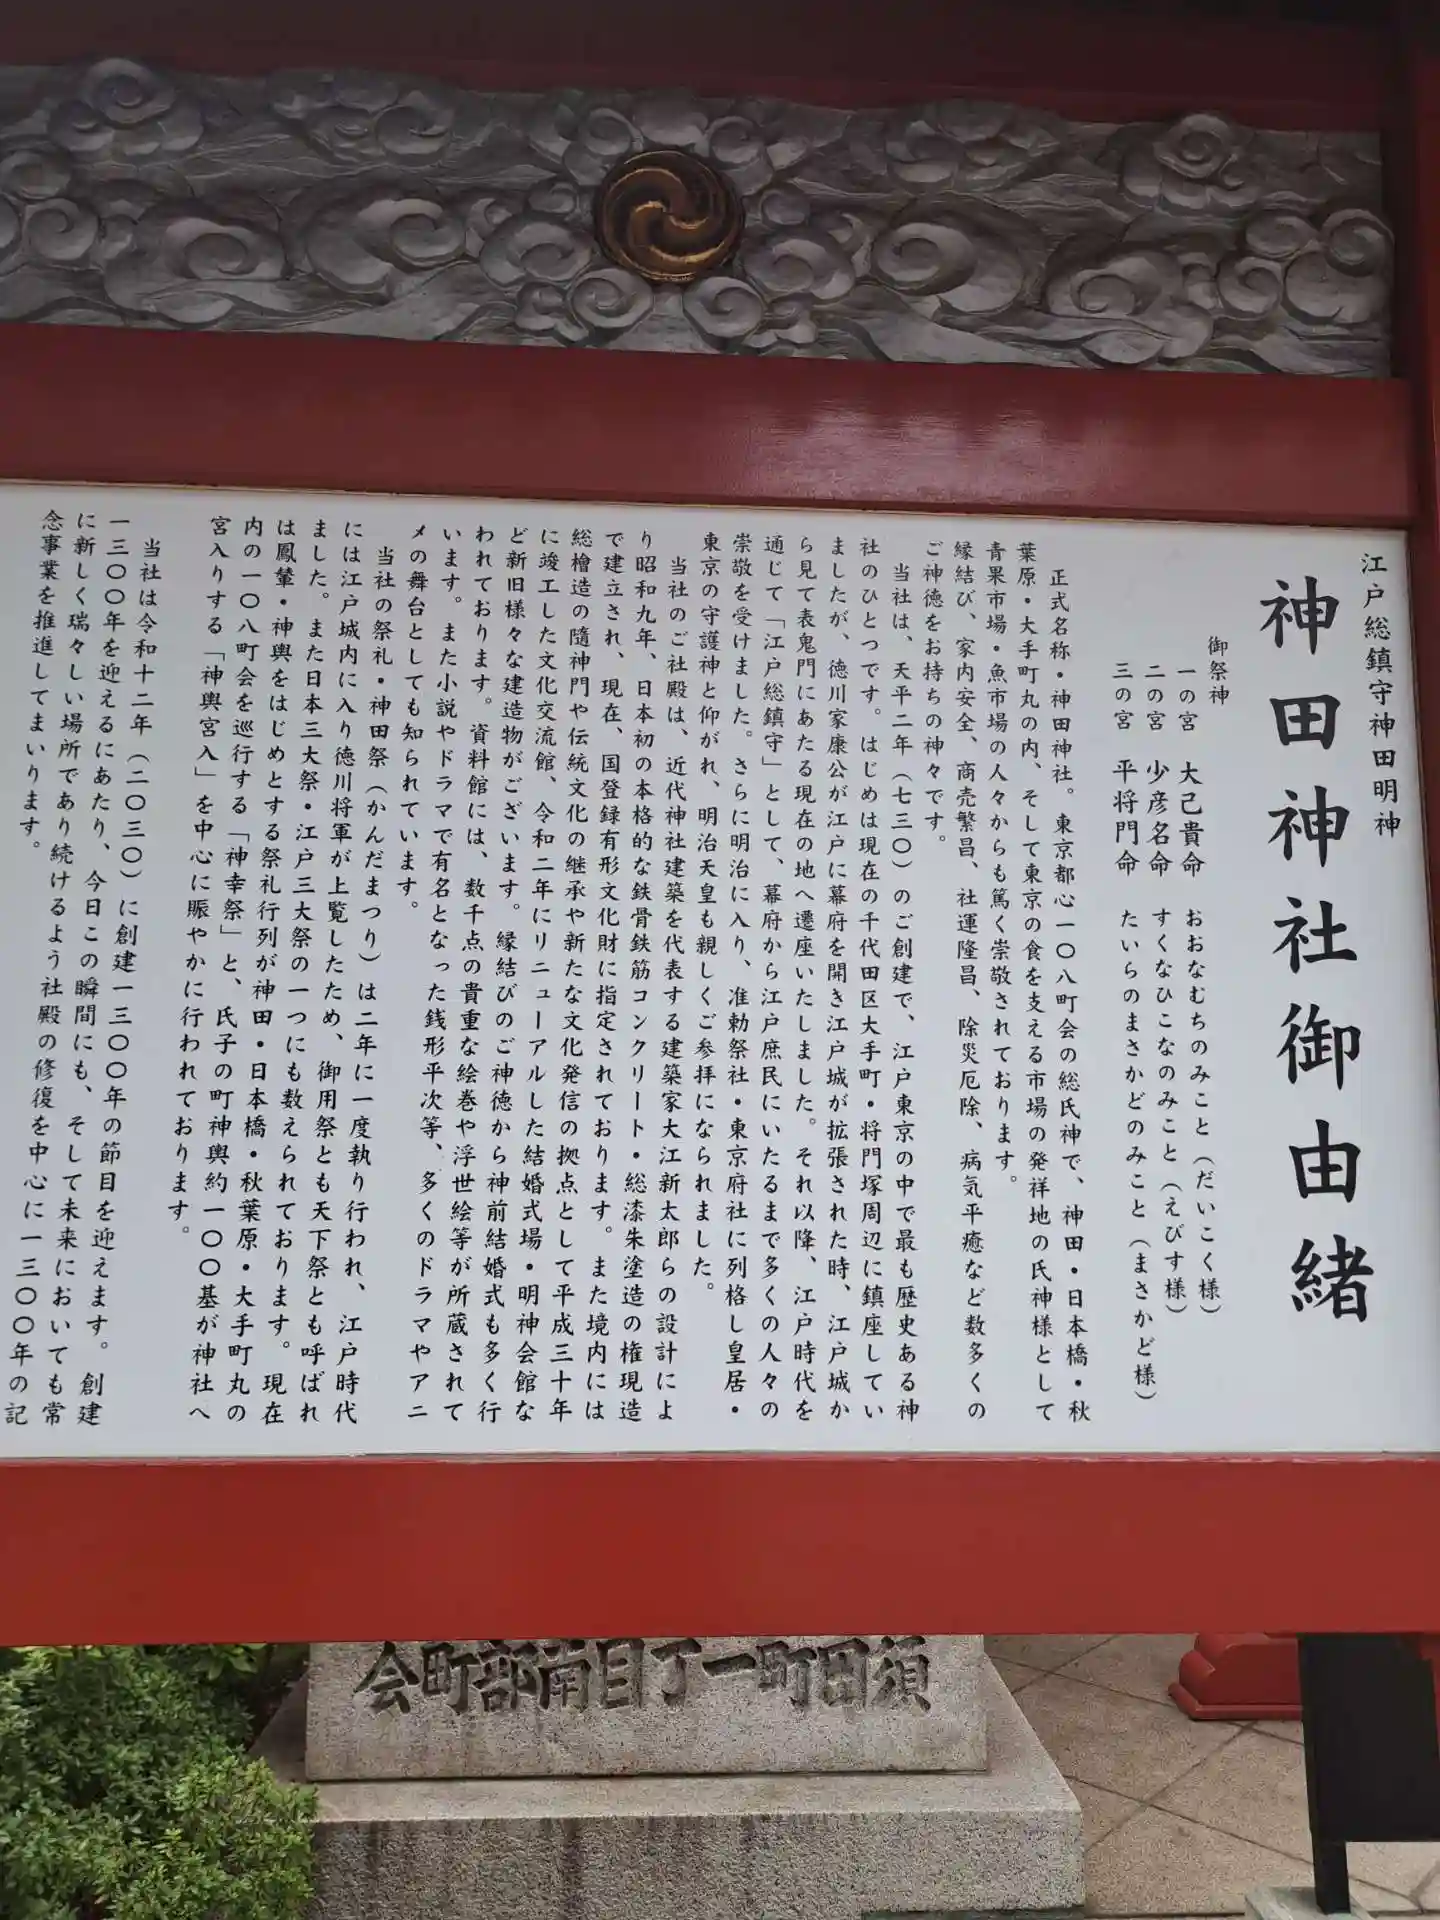 江戸総鎮守神田明神
神田神社御由緒
御祭神
一の宮 大己貴命 おおなむちのみこと（だいこく様）
二の宮 少彦名命 すくなひこなのみこと（えびす様）
三の宮 平将門命 たいらのまさかどのみこと（まさかど様）
正式名称・神田神社。東京都心一〇八町会の総氏神で、神田・日本橋・秋
葉原・大手町丸の内、そして東京の食を支える市場の発祥地の氏神様として
青果市場・魚市場の人々からも篤く崇敬されております。
縁結び、家内安全、商売繁昌、社運隆昌、除災厄除、病気平癒など数多くの
ご神徳をお持ちの神々です。
当社は、天平二年（七三〇）のご創建で、江戸東京の中で最も歴史ある神
社のひとつです。はじめは現在の千代田区大手町・将門塚周辺に鎮座してい
ましたが、徳川家康公が江戸に幕府を開き江戸城が拡張された時、江戸城か
ら見て表鬼門にあたる現在の地へ遷座いたしました。それ以降、江戸時代を
通じて「江戸総鎮守」として、幕府から江戸庶民にいたるまで多くの人々の
崇敬を受けました。さらに明治に入り、准勅祭社・東京府社に列格し皇居・
東京の守護神と仰がれ、明治天皇も親しくご参拝になられました。
当社のご社殿は、近代神社建築を代表する建築家大江新太郎らの設計によ
り昭和九年、日本初の本格的な鉄骨鉄筋コンクリート・総漆朱塗造の権現造
で建立され、現在、国登録有形文化財に指定されております。また境内には
総檜造の隨神門や伝統文化の継承や新たな文化発信の拠点として平成三十年
に竣工した文化交流館、令和二年にリニューアルした結婚式場・明神会館な
ど新旧様々な建造物がございます。縁結びのご神徳から神前結婚式も多く行
われております。資料館には、数千点の貴重な絵巻や浮世絵等が所蔵されて
います。また小説やドラマで有名となった銭形平次等、多くのドラマやアニ
メの舞台としても知られています。
当社の祭礼・神田祭（かんだまつり）は二年に一度執り行われ、江戸時代
には江戸城内に入り徳川将軍が上覧したため、御用祭とも天下祭とも呼ばれ
ました。また日本三大祭・江戸三大祭の一つにも数えられております。現在
は鳳輦・神輿をはじめとする祭礼行列が神田・日本橋・秋葉原・大手町丸の
内の一〇八町会を巡行する「神幸祭」と、氏子の町神輿約一〇〇基が神社へ
宮入りする「神輿宮入」を中心に賑やかに行われております。
当社は令和十二年（二〇三〇）に創建一三〇〇年の節目を迎えます。創建
一三〇〇年を迎えるにあたり、今日この瞬間にも、そして未来においても常
に新しく瑞々しい場所であり続けるよう社殿の修復を中心に一三〇〇年の記
念事業を推進してまいります。
須田町一丁目南部町会